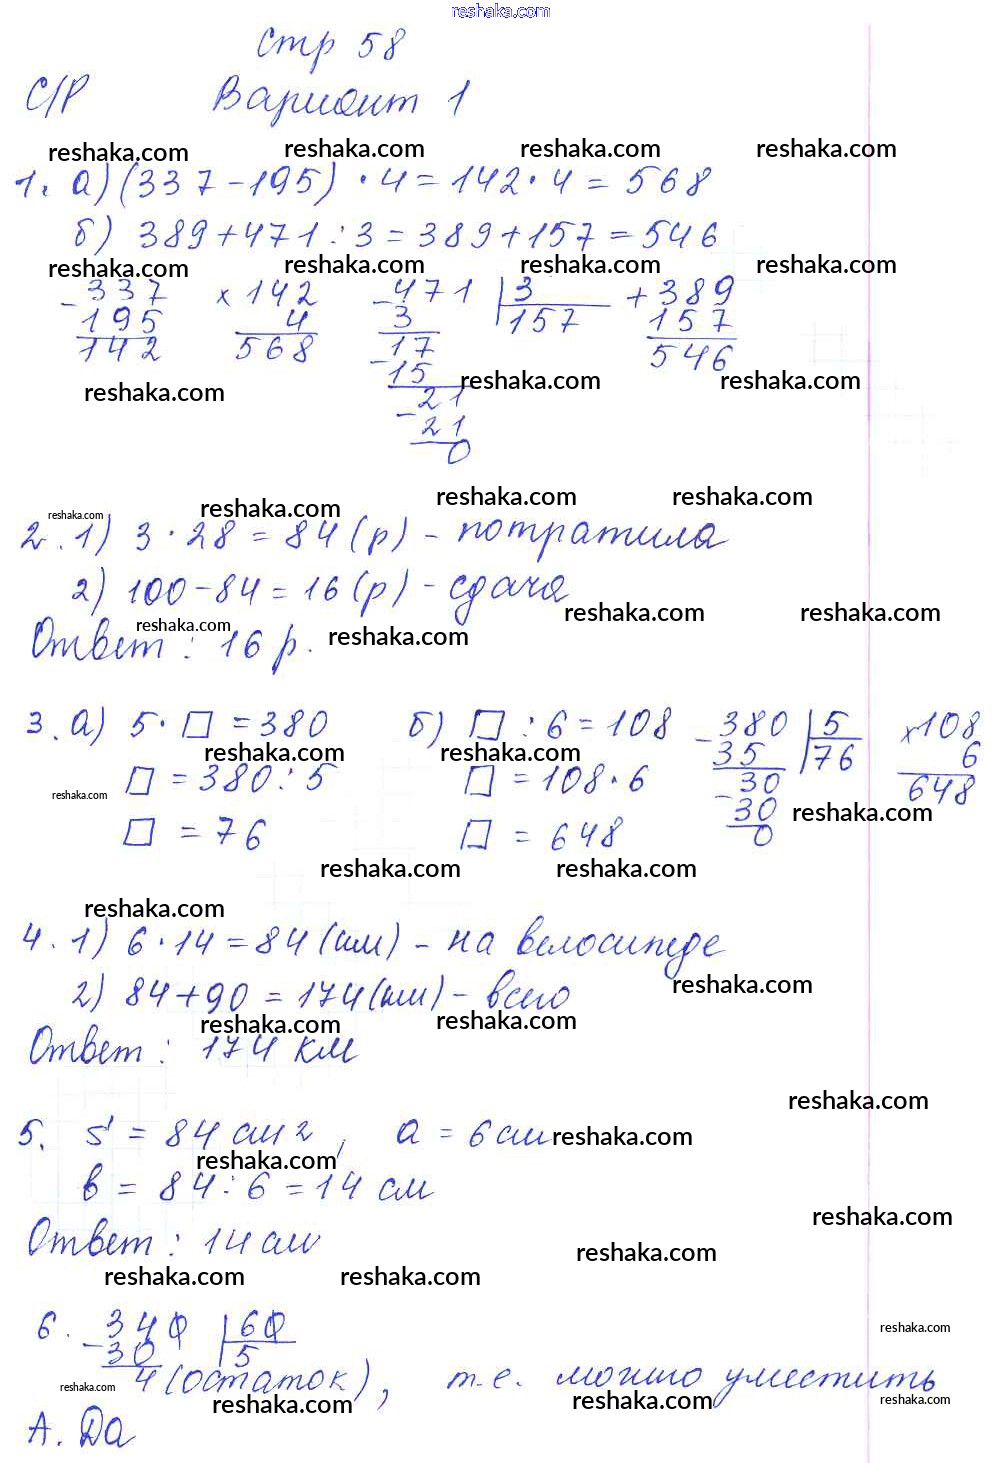 reshaka.com
Стр 58
С/Р Вариант 1
reshaka.com reshaka.com reshaka.com reshaka.com
1. а) (337 - 195) · 4 = 142 · 4 = 568
б) 389 + 471 : 3 = 389 + 157 = 546
reshaka.com reshaka.com reshaka.com reshaka.com
- 337 × 142 - 471 | 3 + 389
195 4 3 157 157
142 568 17 546
- 15
reshaka.com reshaka.com reshaka.com
21
- 21
0
reshaka.com reshaka.com reshaka.com reshaka.com
2. 1) 3 · 28 = 84 (р) - потратила
2) 100 - 84 = 16 (р) - сдача
reshaka.com reshaka.com
Ответ : 16 р.
reshaka.com reshaka.com
3. а) 5 · □ = 380 б) □ : 6 = 108 - 380 | 5 × 108
reshaka.com reshaka.com 35 76 6
□ = 380 : 5 □ = 108 · 6 30 648
reshaka.com - 30 reshaka.com
□ = 76 □ = 648 0
reshaka.com reshaka.com
reshaka.com
4. 1) 6 · 14 = 84 (км) - на велосипеде
reshaka.com
2) 84 + 90 = 174 (км) - всего
reshaka.com reshaka.com
Ответ : 174 км
reshaka.com
5. S = 84 см2, a = 6 см
reshaka.com
reshaka.com
в = 84 : 6 = 14 см
reshaka.com
Ответ : 14 см
reshaka.com
reshaka.com reshaka.com
6. - 340 | 60
reshaka.com
30 5
4 (остаток), т.е. можно уместить
reshaka.com reshaka.com reshaka.com reshaka.com
А. Да